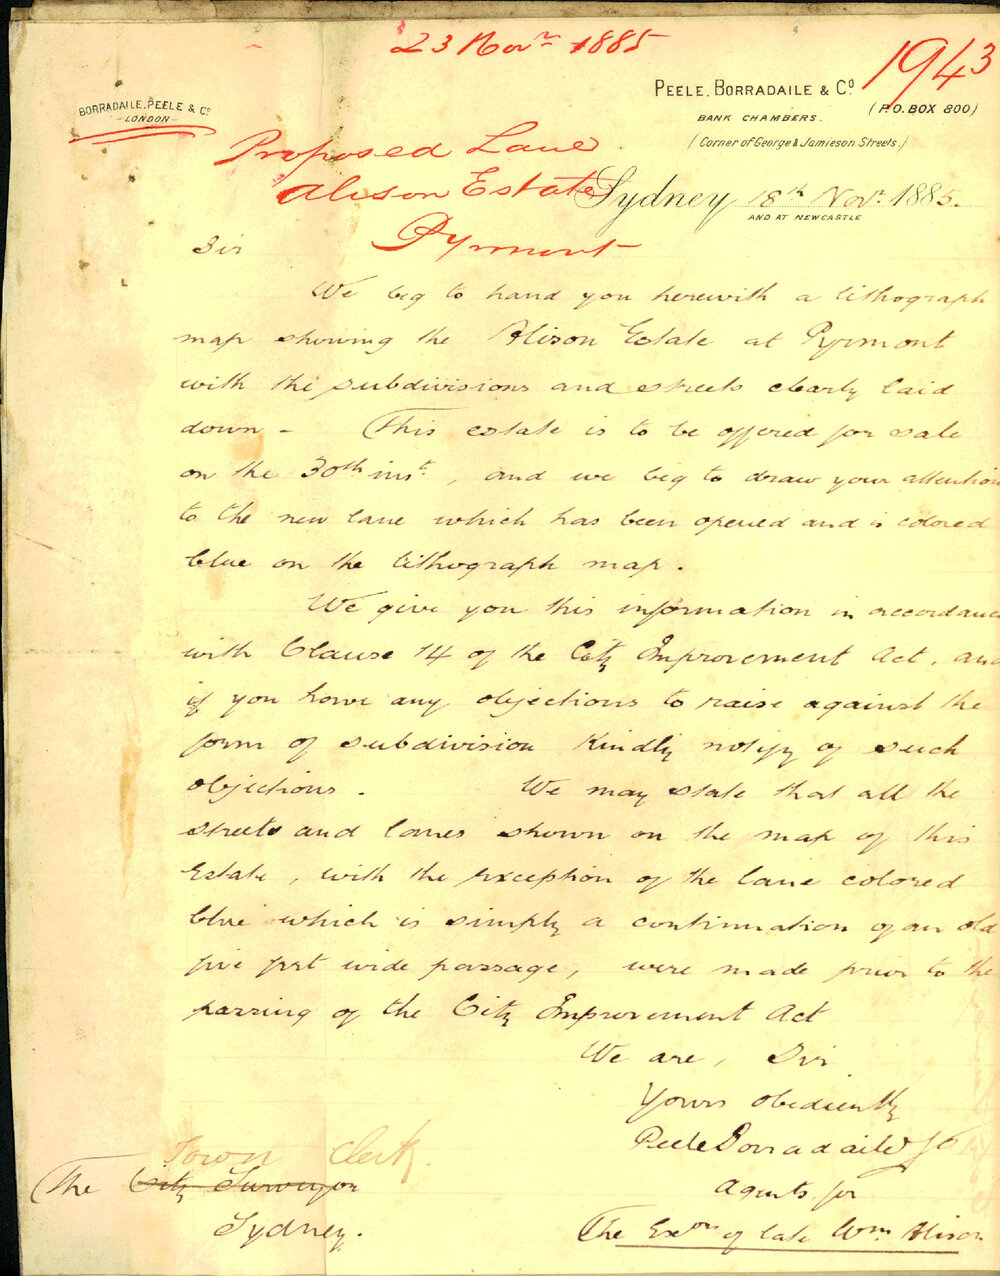 23 Novr 1885
1943
BORRADAILE, PEELE & Co
LONDON
PEELE, BORRADAILE & Co
BANK CHAMBERS.
(P.O. BOX 800)
(Corner of George & Jamieson Streets.)
Proposed Lane
Alison Estate
Pyrmont
Sydney 18th Novr. 1885.
AND AT NEWCASTLE
Sir
We beg to hand you herewith a lithograph
map showing the Alison Estate at Pyrmont
with the subdivisions and streets clearly laid
down - This estate is to be offered for sale
on the 30th inst., and we beg to draw your attention
to the new lane which has been opened and is colored
blue on the lithograph map.
We give you this information in accordance
with Clause 14 of the City Improvement Act, and
if you have any objections to raise against the
form of subdivision kindly notify of such
objections. We may state that all the
streets and lanes shown on the map of this
Estate, with the exception of the lane colored
blue which is simply a continuation of an old
five feet wide passage, were made prior to the
passing of the City Improvement Act
We are, Sir
Yours obediently
Peele Borradaile & Co
Agents for
The Exors of late Wm Alison
Town Clerk.
The City Surveyor
Sydney.